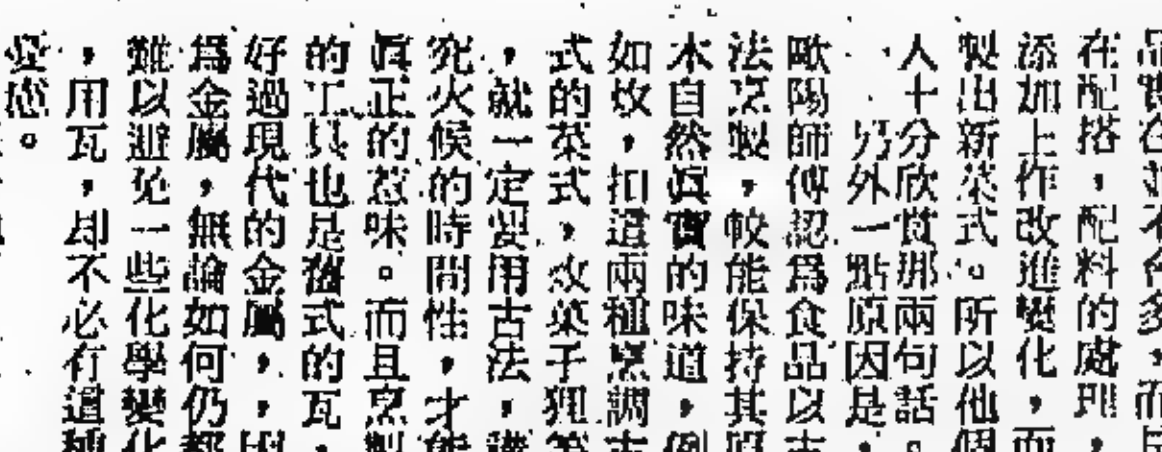 在配搭，配料的處理，
添加上作改進變化，而
製出新菜式。所以他個
人十分欣賞那兩句話。
另外一點原因是，
歐陽師傅認爲食品以古
法烹製，較能保持其原
木自然眞實的味道，例
如炆，扣這兩種烹調古
式的菜式，炆菓子狸等
，就一定要用古法，講
究火候的時間性，才能
眞正的惹味。而且烹製
的工具也是舊式的瓦，
好過現代的金屬，因
爲金屬，無論如何仍都
難以避免一些化學變化
，用瓦，却不必有這種
憂慮。